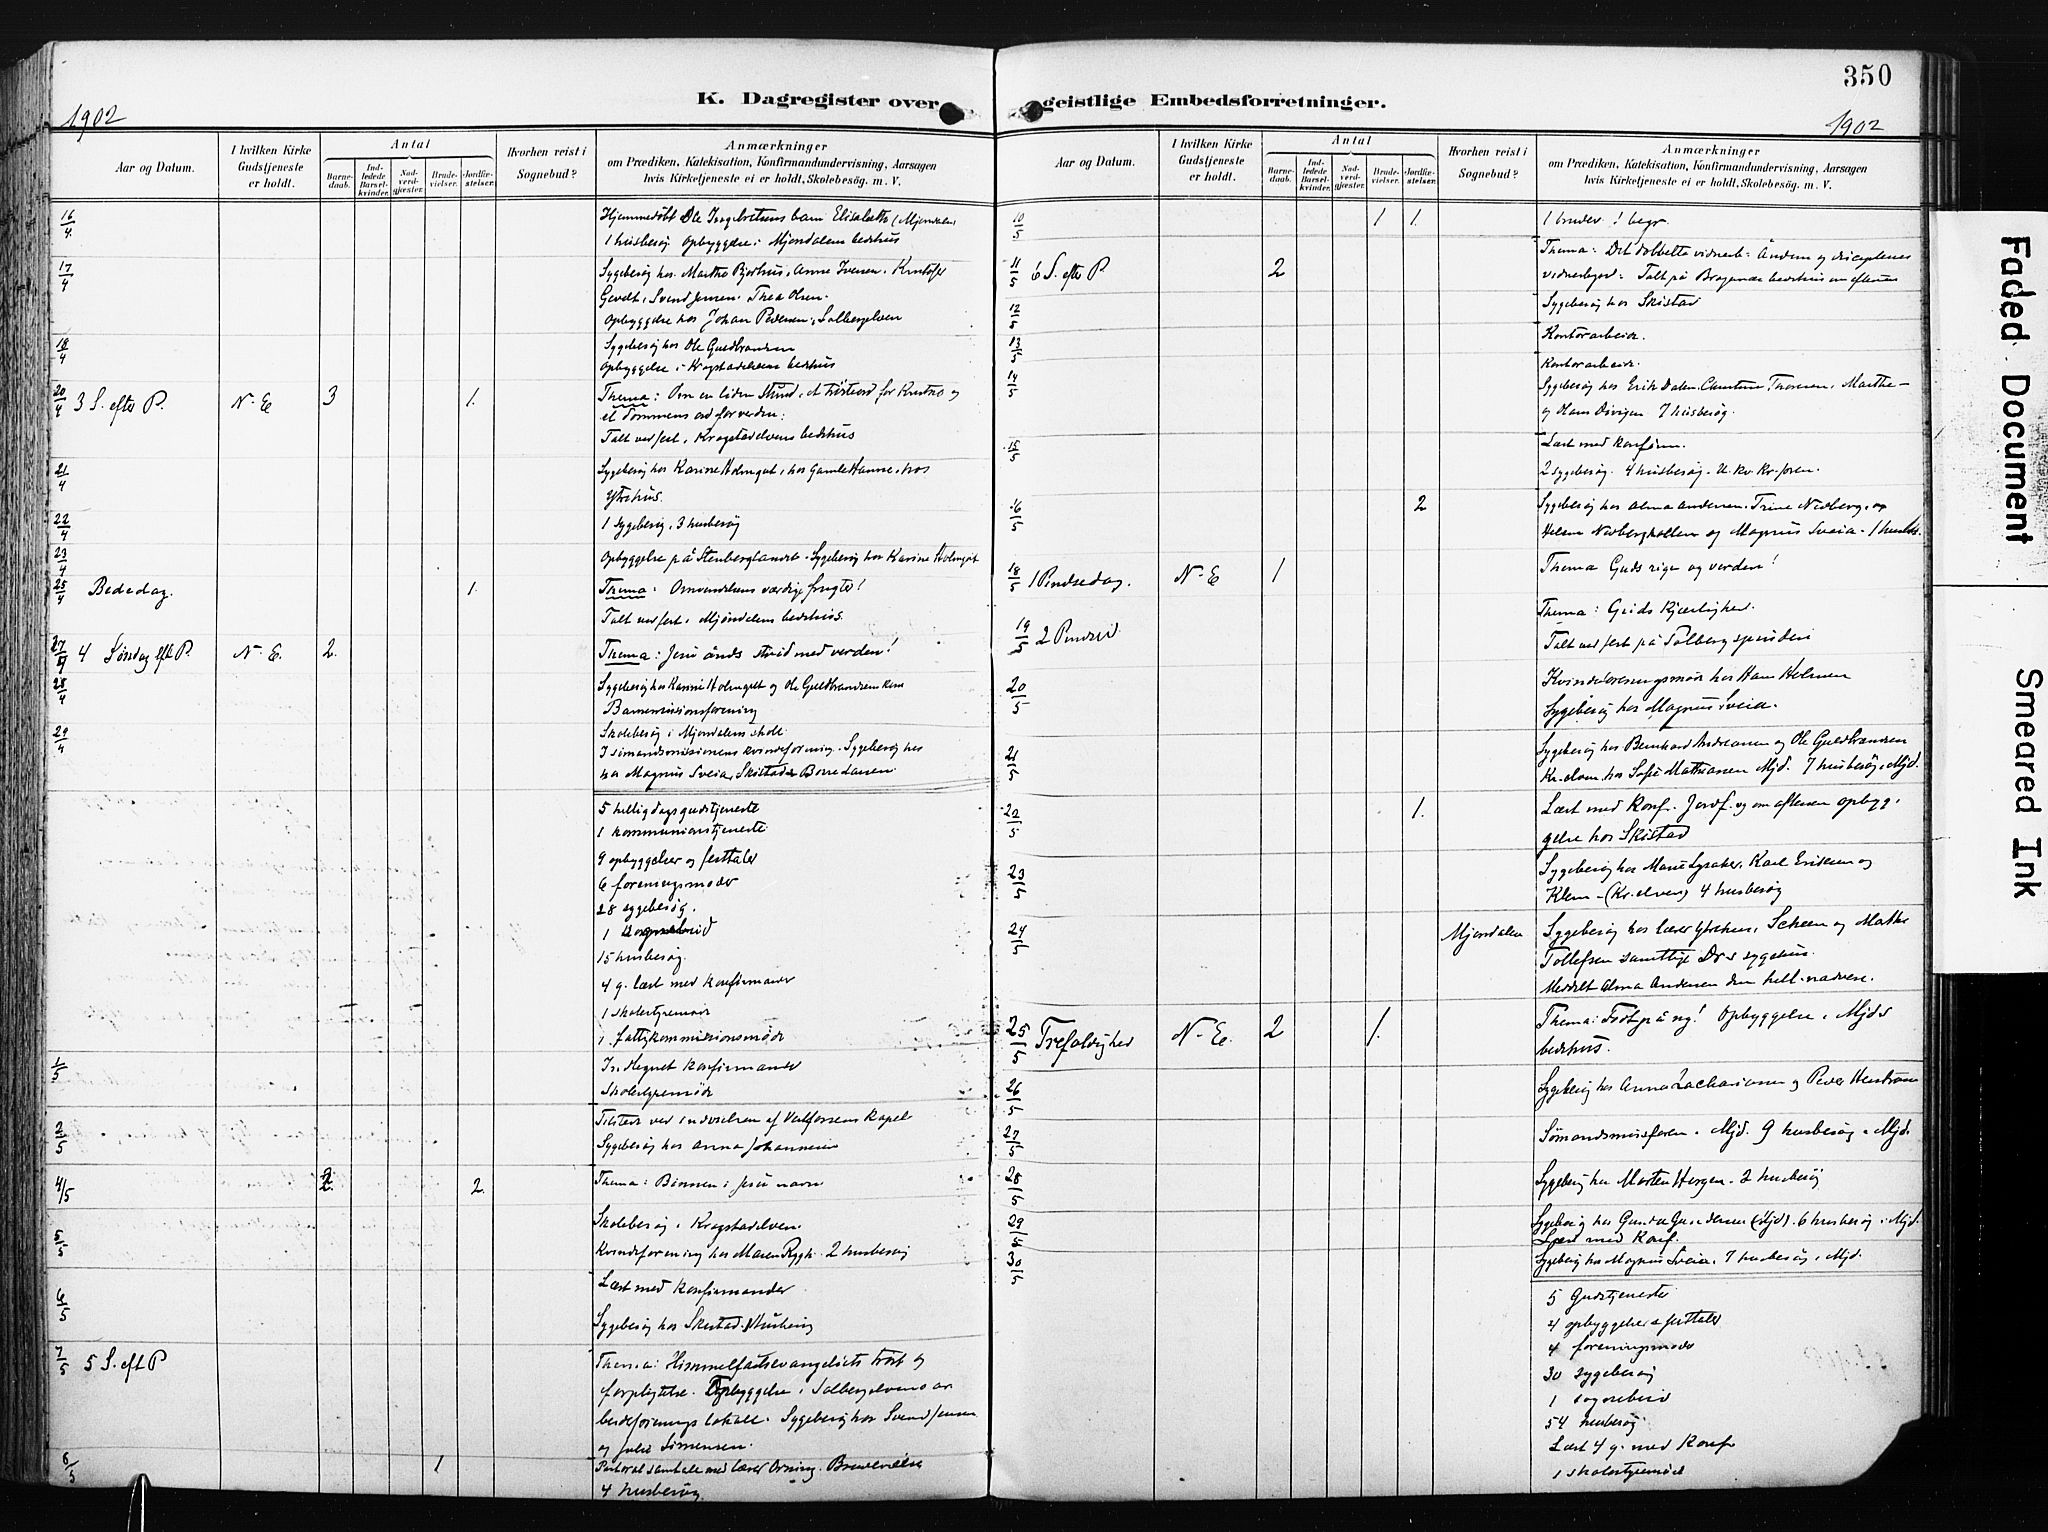 350
K. Dagregister over geistlige Embedsforretninger.
1902
1902
Aar og Datum.
I hvilken Kirke Gudstjeneste er holdt.
Antal
Barnedaab.
Indledede Barselkvinder.
Nadverdgjester.
Brudevielser.
Jordfæstelser.
Hvorhen reist i Sognebud?
Anmærkninger
om Prædiken, Katekisation, Konfirmandundervisning, Aarsagen
hvis Kirketjeneste ei er holdt, Skolebesøg. m. V.
16/4 Hjemmedøbt Ole Ingebretsens barn Elisabeth (Mjøndalen)
1 husbesøg Opbyggelse i Mjøndalens bedehus
17/4 Sygebesøg hos Marthe Bjørhus, Anne Iversen,
Svend Jensen. Thea Olsen.
Opbyggelse hos Johan Pedersen, Solbergelven
18/4 Sygebesøg hos Ole Guldbrandsen
Opbyggelse i Krogstadelvens bedehus
20/4 3 S. efter P. N. E 3 1. Thema: Om en liden Stund, et trøsteord for Kristne og
et dommens ord for verden.
Talt ved fest i Krogstadelvens bedehus
21/4 Sygebesøg hos Karine Holmgut, hos Gamle Hanne, hos
Ytrehus.
22/4 1 sygebesøg, 3 husbesøg
23/4 Opbyggelse på Stenberglandet. Sygebesøg hos Karine Holmgut
25/4 Bededag. 1. Thema: Omvendelsens værdige frugter!
Talt ved fest i Mjøndalens bedehus.
27/4 4 Søndag eft P. N. E. 2. Thema: Jesu ånds strid med verden!
28/4 Sygebesøg hos Karine Holmgut og Ole Guldbrandsen
Barnemissionsforening
29/4 Skolebesøg i Mjøndalens skole
I sømandsmissionens kvindeforening. Sygebesøg hos
hos Magnus Sveia, Skistad
5 helligdagsgudstjeneste
1 kommunionstjeneste
9 opbyggelser og festtaler
6 foreningsmøder
28 sygebesøg.
1 sognebud
15 husbesøg.
4 g. læst med konfirmander
1 skolestyremøde
1. fattigkommissionsmøde
1/5 Indtegnet konfirmander
Skolestyremøde
2/5 Tilstede ved indvielsen af Vestfossens kapel
Sygebesøg hos Anna Johannesen
4/5 2. 2. Thema: Bønnen i Jesu navn
5/5 Skolebesøg i Krogstadelven.
Kvindeforening hos Maren Rygh. 2 husbesøg
6/5 Læst med konfirmander
Sygebesøg hos Skistad.
7/5 5 S. eft P Thema: Himmelfartsevangeliets trøst og
forpligtelse. Opbyggelse i Solbergelvens ar
beiderforenings lokale. Sygebesøg hos Svend Jensen
og Julie Simensen.
6/5 1 Pastoral samtale med lærer Orning. Brudevielse
4 husbesøg.
Aar og Datum.
I hvilken Kirke Gudstjeneste er holdt.
Antal
Barnedaab.
Indledede Barselkvinder.
Nadverdgjester.
Brudevielser.
Jordfæstelser.
Hvorhen reist i Sognebud?
Anmærkninger
om Prædiken, Katekisation, Konfirmandundervisning, Aarsagen
hvis Kirketjeneste ei er holdt, Skolebesøg. m. V.
10/5 1 1. 1 brudev. 1 begr.
11/5 6 S. efter P 2 Thema: Det dobbelte vidnesb: Åndens og disciplenes
vidnesbyrd. Talt på Bragenæs bedehus om aftenen
12/5 Sygebesøg hos Skistad
13/5 Kontorarbeide.
14/5 Kontorarbeide.
Sygebesøg hos Erik Dalen, Thoresen, Marthe
og Hans Divigen 7 husbesøg.
15/5 Læst med konfirm.
2 sygebesøg. 4 husbesøg.
16/5 2 Sygebesøg hos Alma Andersen, Trine Nedberg,
Helene Nedbergkollen og Magnus Sveia. 1 husbes.
18/5 1 Pindsedag. N. E 1 Thema Guds rige og verden!
19/5 2 Pindsed. Thema: Guds Kjærlighed.
Talt ved fest på Solberg spinderi
20/5 Kvindeforeningsmøde hos Hans Holmen
Sygebesøg hos Magnus Sveia.
21/5 Sygebesøg hos Bernhard Andreasen og Ole Guldbrandsen
Kr.elven, hos Sofie Mathiasen Mjd. 7 husbesøg i Mjd.
22/5 1. Læst med konf. Jordf. og om aftenen opbyg
gelse hos Skistad
23/5 Sygebesøg hos Marie Lysaker, Karl Eriksen og
Klem (Kr.elven) 4 husbesøg
24/5 Mjøndalen Sygebesøg hos lærer Ytrehus, Scheen og Mathe
Tollefsen samtlige Dr.s sygehus.
Meddelt Alma Andersen den hell. nadvere.
25/5 Trefoldighed N. E. 2 1. Thema: Født på ny! Opbyggelse i Mjd.s
bedehus.
26/5 Sygebesøg hos Anna Zachariasen og Peder
27/5 Sømandsmissforen. Mjd. 9 husbesøg i Mjd.
28/5 Sygebesøg hos Morten Horgen. 2 husbesøg
29/5 Sygebesøg hos Gunda Gundersen (Mjd). 6 husbesøg i Mjd.
Læst med Konf.
30/5 Sygebesøg hos Magnus Sveia. 7 husbesøg i Mjd.
5 Gudstjenester
4 opbyggelser & festtaler
4 foreningsmøder
30 sygebesøg
1 sognebud
54 husbesøg
Læst 4 g. med Konf
1 skolestyremøde
Faded Document
Smeared Ink